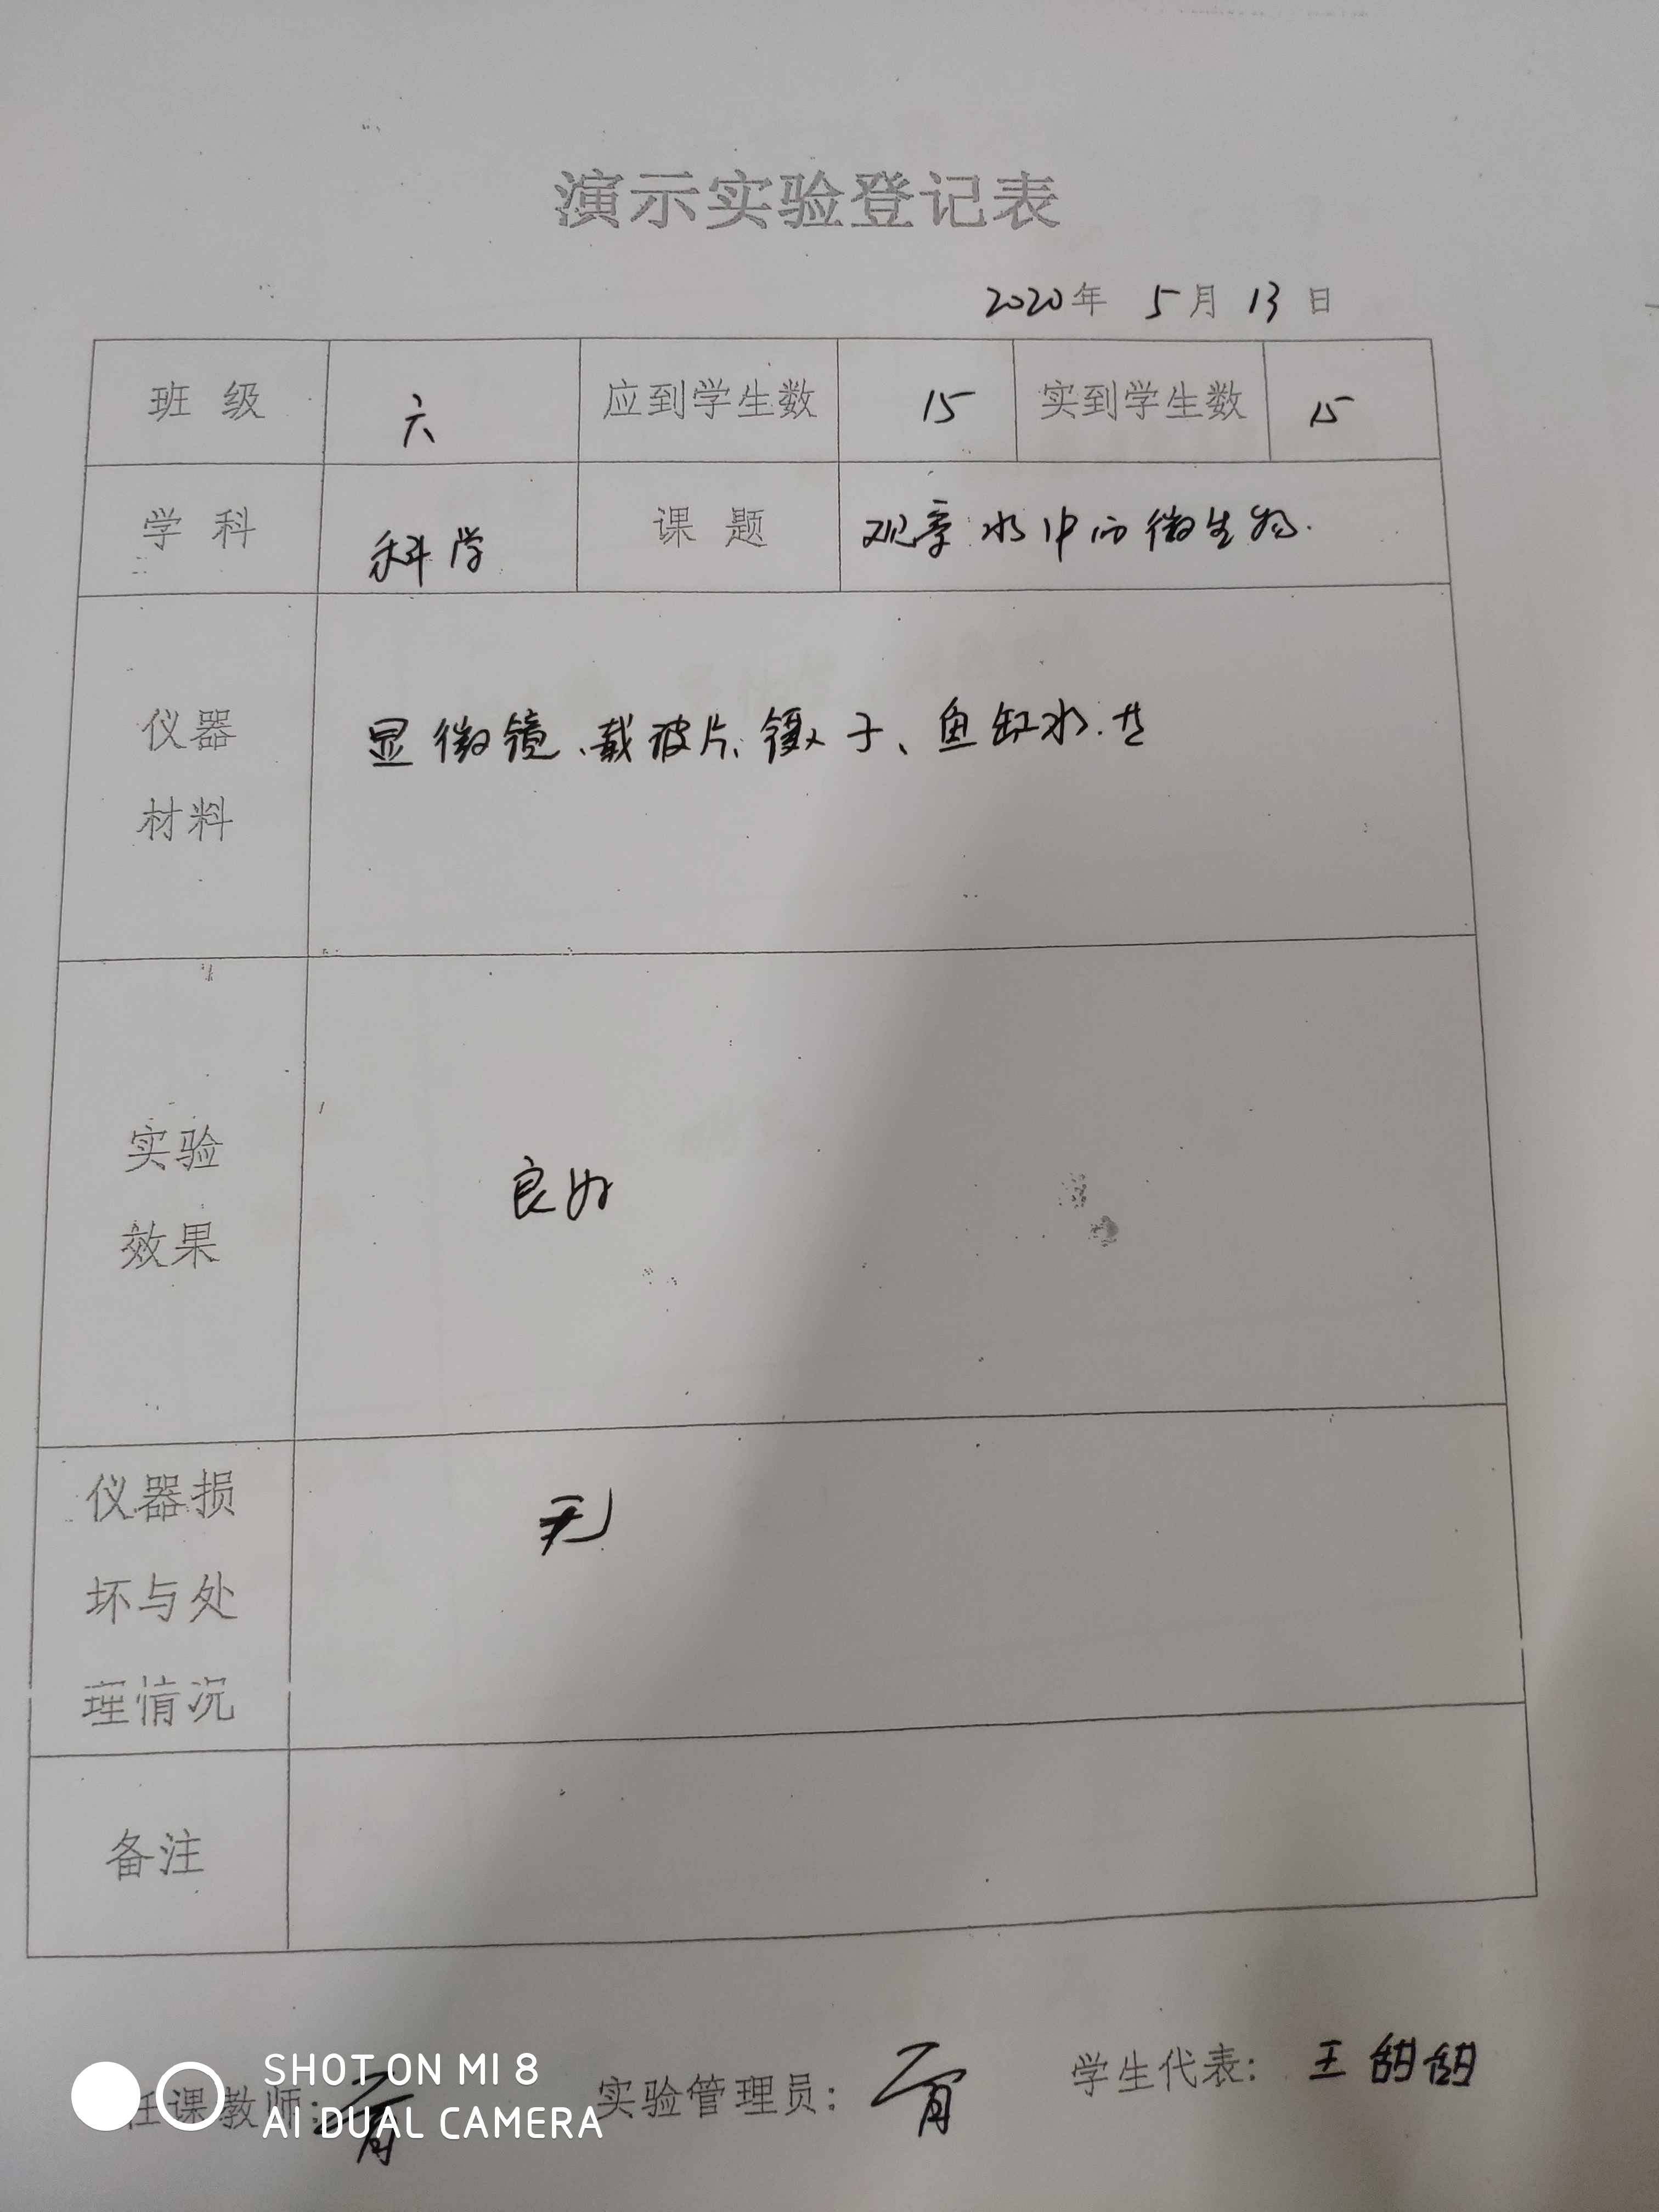 演示实验登记表
2020年 5月 13日
班级 六 应到学生数 15 实到学生数 15
学科 科学 课题 观察水中的微生物.
仪器
材料
显微镜、载玻片、镊子、鱼缸水.
实验
效果
良好
仪器损
坏与处
理情况
无
备注
任课教师:
实验管理员:
学生代表: 王甜甜
SHOT ON MI 8
AI DUAL CAMERA